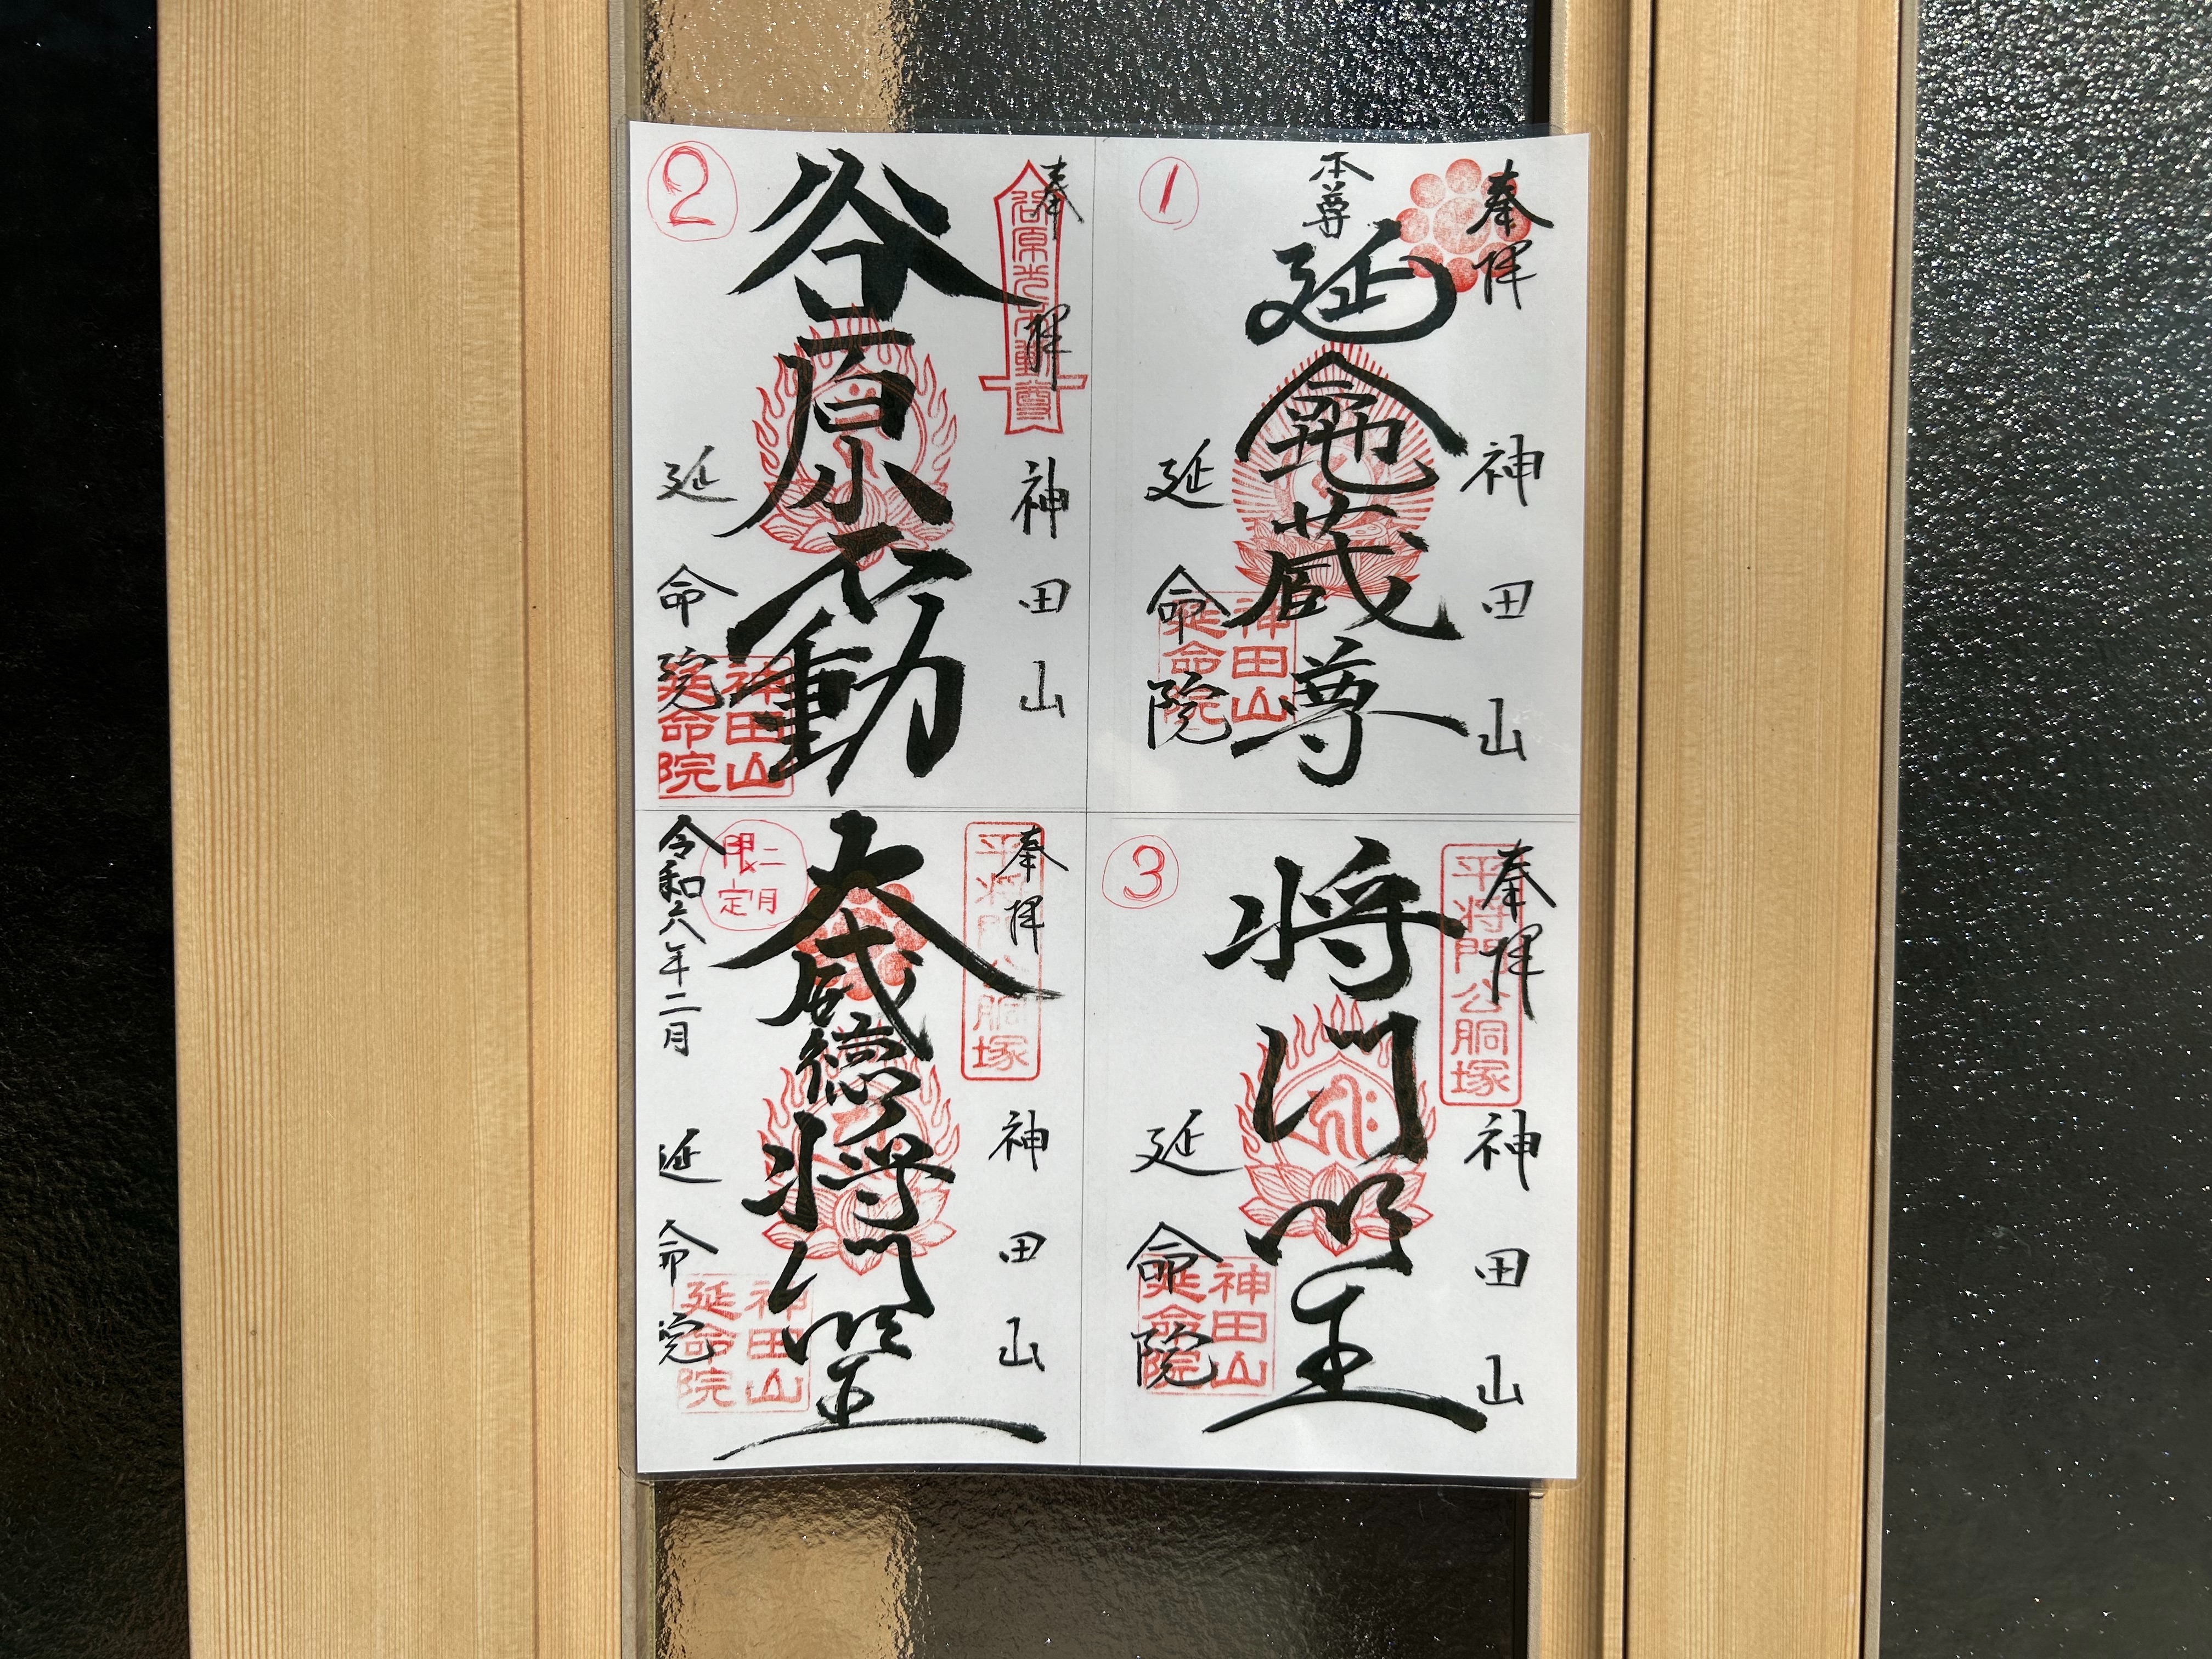 ①
奉拝
本尊
延命地蔵尊
神田山
延命院
神田山
延命院
②
奉拝
谷原不動
神田山
延命院
神田山
延命院
③
奉拝
平将門公胴塚
将門明王
神田山
延命院
神田山
延命院
二月
限定
奉拝
平将門公胴塚
大威徳将門明王
神田山
令和六年二月
延命院
神田山
延命院